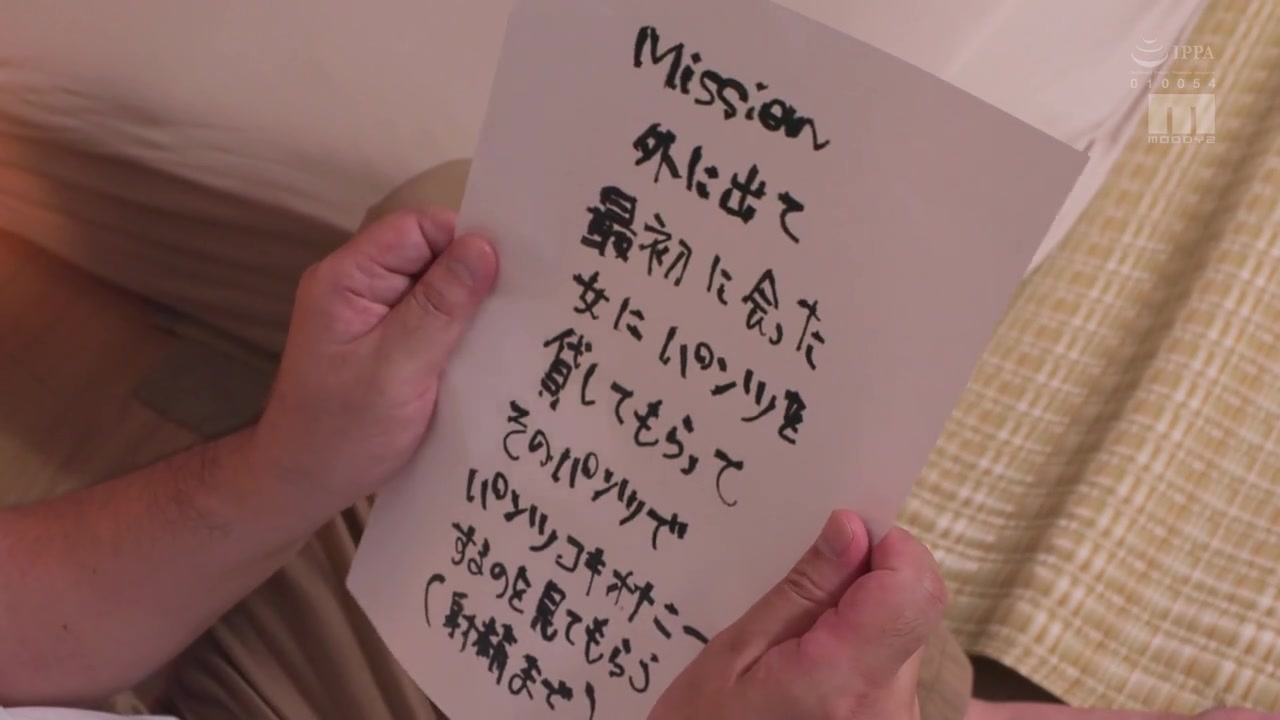 Mission
外に出て
最初に会った
女にパンツを
貸してもらって
そのパンツで
パンツコキオナニー
するのを見てもらう
(射精まで)
IPPA
010054
MOODYZ